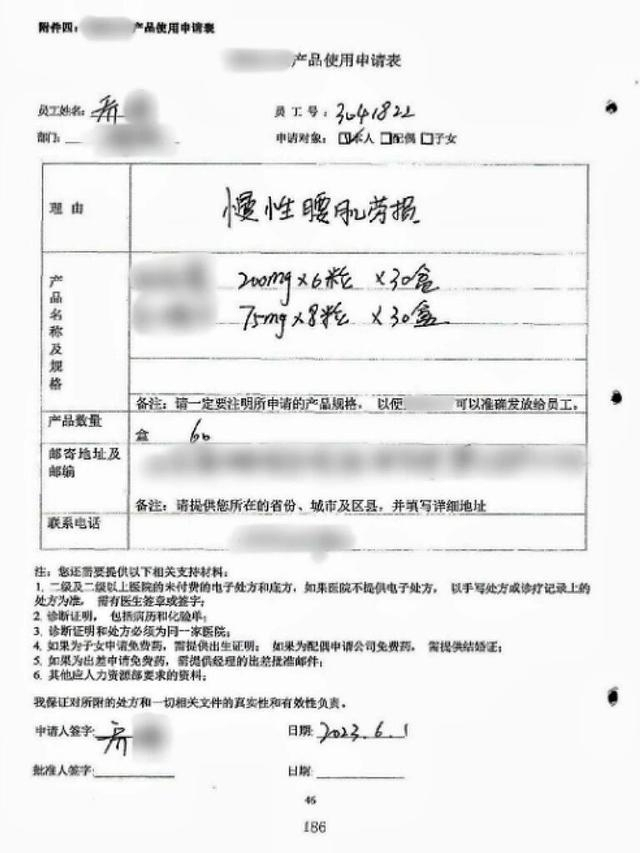 附件四：产品使用申请表
产品使用申请表
员工姓名：乔 员工号：3041822
部门： 申请对象：☑本人 □配偶 □子女
理由 慢性腰肌劳损
产品名称及规格
200mg×6粒 ×30盒
75mg×8粒 ×30盒
备注：请一定要注明所申请的产品规格，以便 可以准确发放给员工。
产品数量 盒 60
邮寄地址及邮编
备注：请提供您所在的省份、城市及区县，并填写详细地址
联系电话
注：您还需要提供以下相关支持材料：
1. 二级及二级以上医院的未付费的电子处方和底方，如果医院不提供电子处方，以手写处方或诊疗记录上的
处方为准，需有医生签章或签字；
2. 诊断证明，包括病历和化验单；
3. 诊断证明和处方必须为同一家医院；
4. 如果为子女申请免费药，需提供出生证明；如果为配偶申请公司免费药，需提供结婚证；
5. 如果为出差申请免费药，需提供经理的出差批准邮件；
6. 其他应人力资源部要求的资料；
我保证对所附的处方和一切相关文件的真实性和有效性负责。
申请人签字：乔 日期：2023.6.1
批准人签字： 日期：
46
186